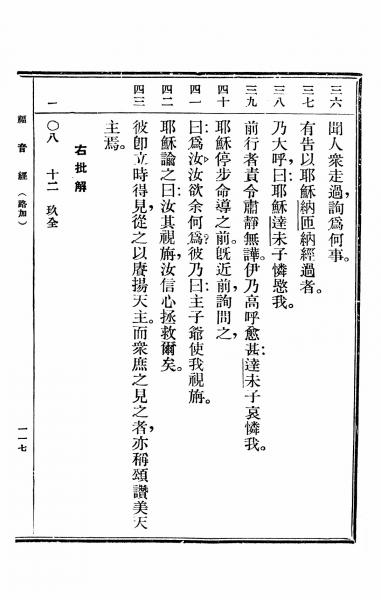 三六 聞人衆走過，詢爲何事。
三七 有告以耶穌納匝納經過者。
三八 乃大呼曰：耶穌達未子憐愍我。
三九 前行者責令肅靜無譁。伊乃高呼愈甚：達未子哀憐我。
四十 耶穌停步命導之前。旣近前，詢問之，
四一 曰：爲汝汝欲余何爲？彼乃曰：主子爺使我視旃。
四二 耶穌諭之曰：汝其視旃，汝信心拯救爾矣。
四三 彼卽立時得見，從之以賡揚天主。而衆庶之見之者，亦稱頌讚美天
主焉。
右批解
一〇八 十二 玖全
福音經（路加）
一一七